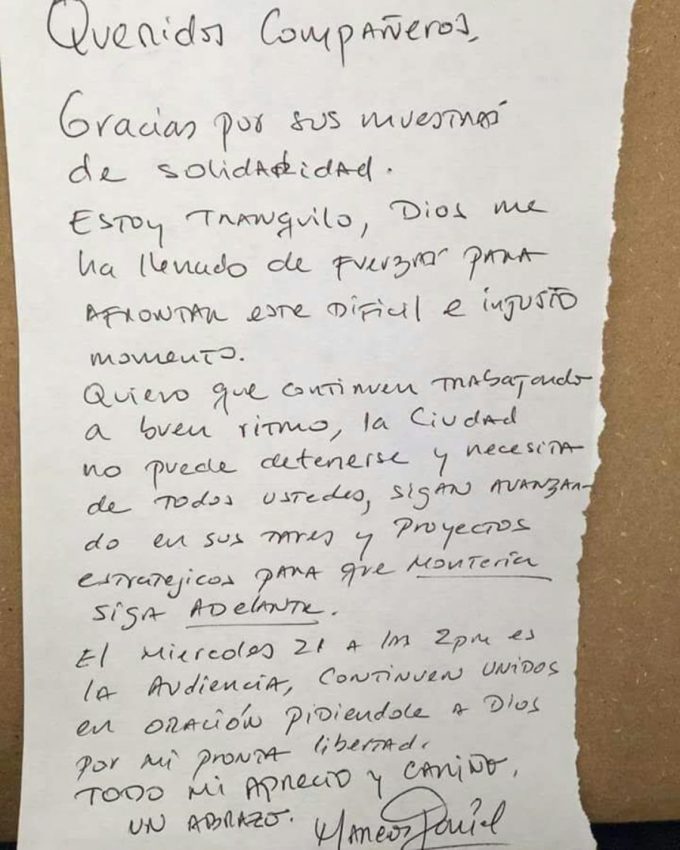 Queridos Compañeros,
Gracias por sus muestras
de solidaridad.
Estoy tranquilo, Dios me
ha llenado de fuerzas para
afrontar este dificil e injusto
momento.
Quiero que continuen trabajando
a buen ritmo, la Ciudad
no puede detenerse y necesita
de todos ustedes, sigan avanzan-
do en sus tares y proyectos
estratejicos para que Montería
siga adelante.
El Miercoles 21 a las 2pm es
la Audiencia, continuen unidos
en oración pidiendole a Dios
por mi pronta libertad.
Todo mi aprecio y cariño,
un abrazo. Marcos Daniel